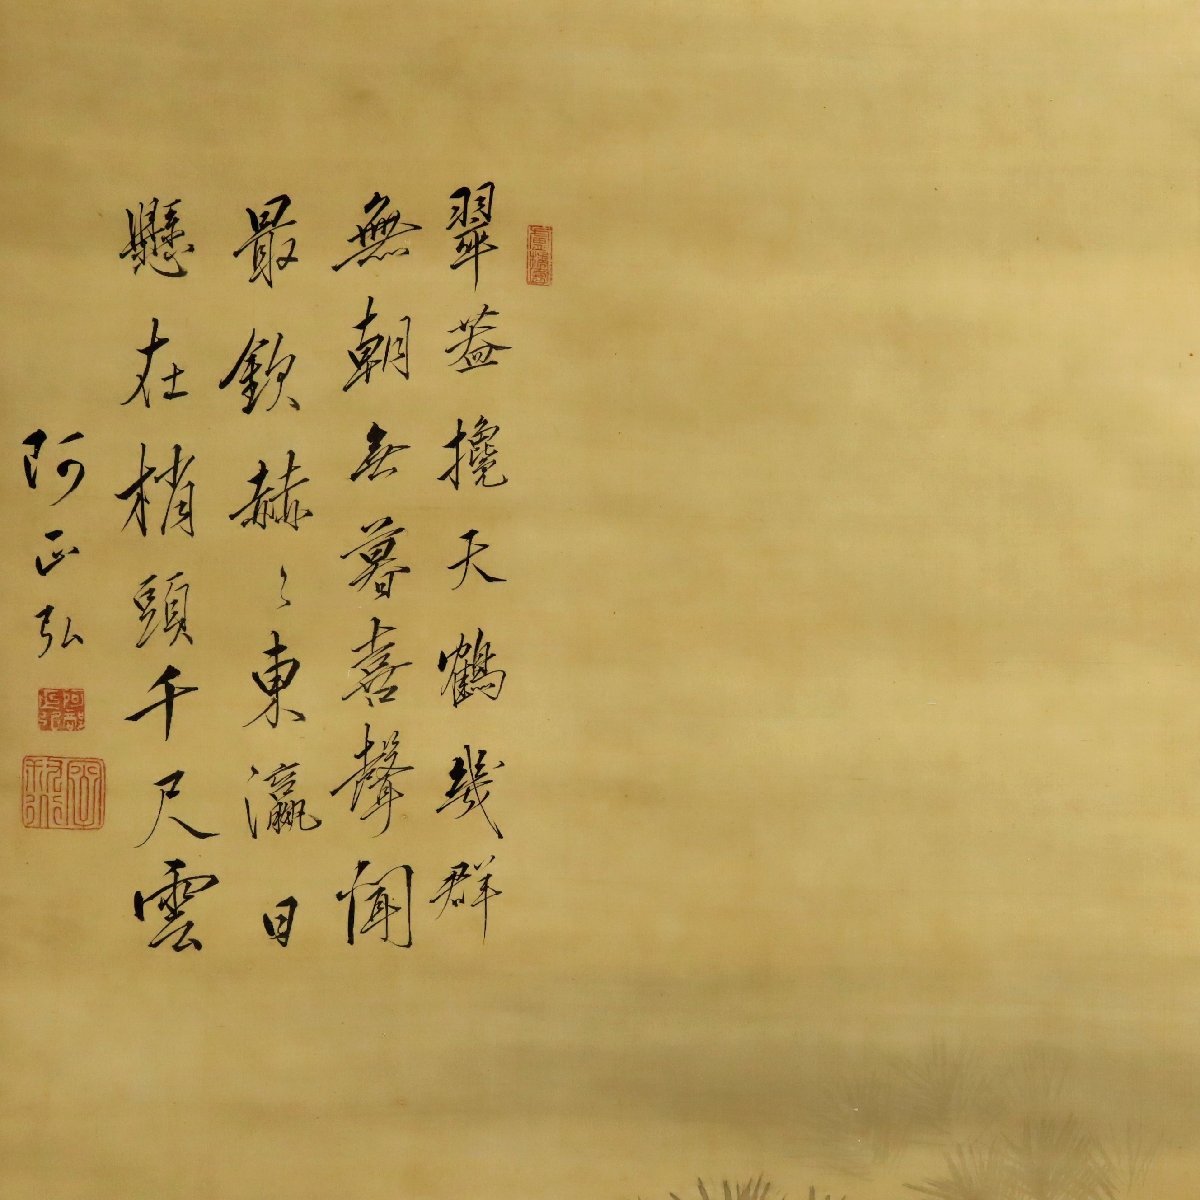 翠蓋攙天鶴幾群
無朝無暮喜聲聞
最欽赫〻東瀛日
懸在梢頭千尺雲
阿正弘